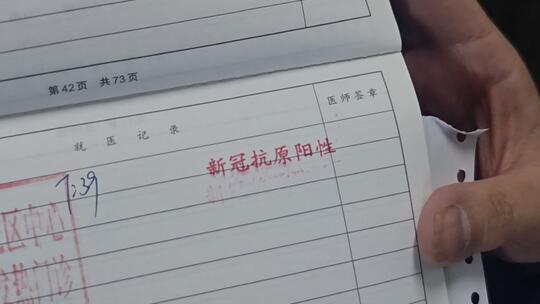 第42页 共73页
就医记录
医师签章
新冠抗原阳性
7:39
区中心
热门诊